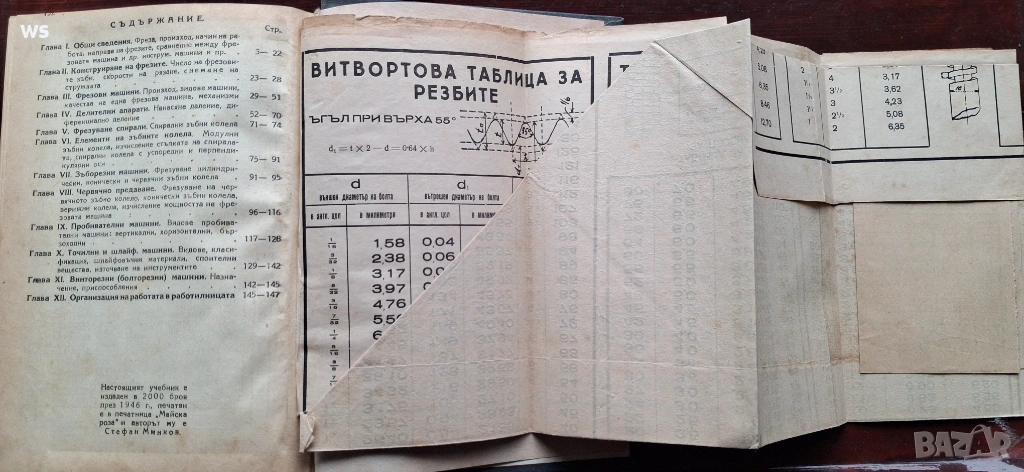 ws
СЪДЪРЖАНИЕ.
Стр.
Глава I. Общи сведения. Фреза, произход, начин на работа, направа на фрезите, сравнение между фрезовата машина и др. инструм. машини и пр. 3— 22
Глава II. Конструиране на фрезите. Число на фрезовите зъби, скорости на рязане, снемане на стружката 23— 28
Глава III. Фрезови машини. Произход, видове машини, качества на една фрезова машина, механизми 29— 51
Глава IV. Делителни апарати. Нанасяне деление, диференциално деление 52— 70
Глава V. Фрезуване спирали. Спирални зъбни колела 71— 74
Глава VI. Елементи на зъбните колела. Модулни зъбни колела, изчисление стъпката на спиралните зъбни колела, спирални колела с успоредни и перпендикулярни оси 75— 91
Глава VII. Зъборезни машини. Фрезуване цилиндрически, конически и червячни зъбни колела 91— 95
Глава VIII. Червячно предаване. Фрезуване на червячното зъбно колело, конически зъбни колела, верижни колела, изчисление мощността на фрезовата машина 96—116
Глава IX. Пробивателни машини. Видове пробивателни машини: вертикални, хоризонтални, бързоходни 117—128
Глава X. Точилни и шлайф. машини. Видове, класификация, шлайфовъчни материали, споителни вещества, източване на инструментите 129—142
Глава XI. Винторезни (болторезни) машини. Назначение, приспособления 142—145
Глава XII. Организация на работата в работилницата 145—147
Настоящият учебник е
издаден в 2000 броя
през 1946 г., печатан
е в печатница „Майска
роза“ и авторът му е
Стефан Минков.
ВИТВОРТОВА ТАБЛИЦА ЗА
РЕЗБИТЕ
ЪГЪЛ ПРИ ВЪРХА 55°
55°
d₁ = t × 2 — d = 0·64 × h
d d₁
външен диаметър на болта вътрешен диаметър на болта
в англ. цол в милиметри в англ. цол в милим
1/16 1,58 0,04
3/32 2,38 0,06
1/8 3,17
5/32 3,97
3/16 4,76
7/32
1/4
5,08
6,35
8,46
12,70
2
4 3,17
3½ 3,62
3 4,23
2½ 5,08
2 6,35
BAZAR